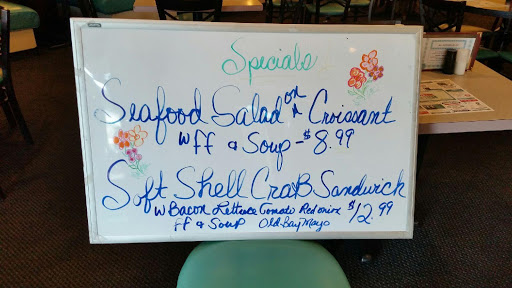 Specials
Seafood Salad on a Croissant
w FF & Soup - $8.99
Soft Shell CraB Sandwich
w Bacon Lettuce Tomato Red onion $12.99
FF & Soup Old Bay Mayo